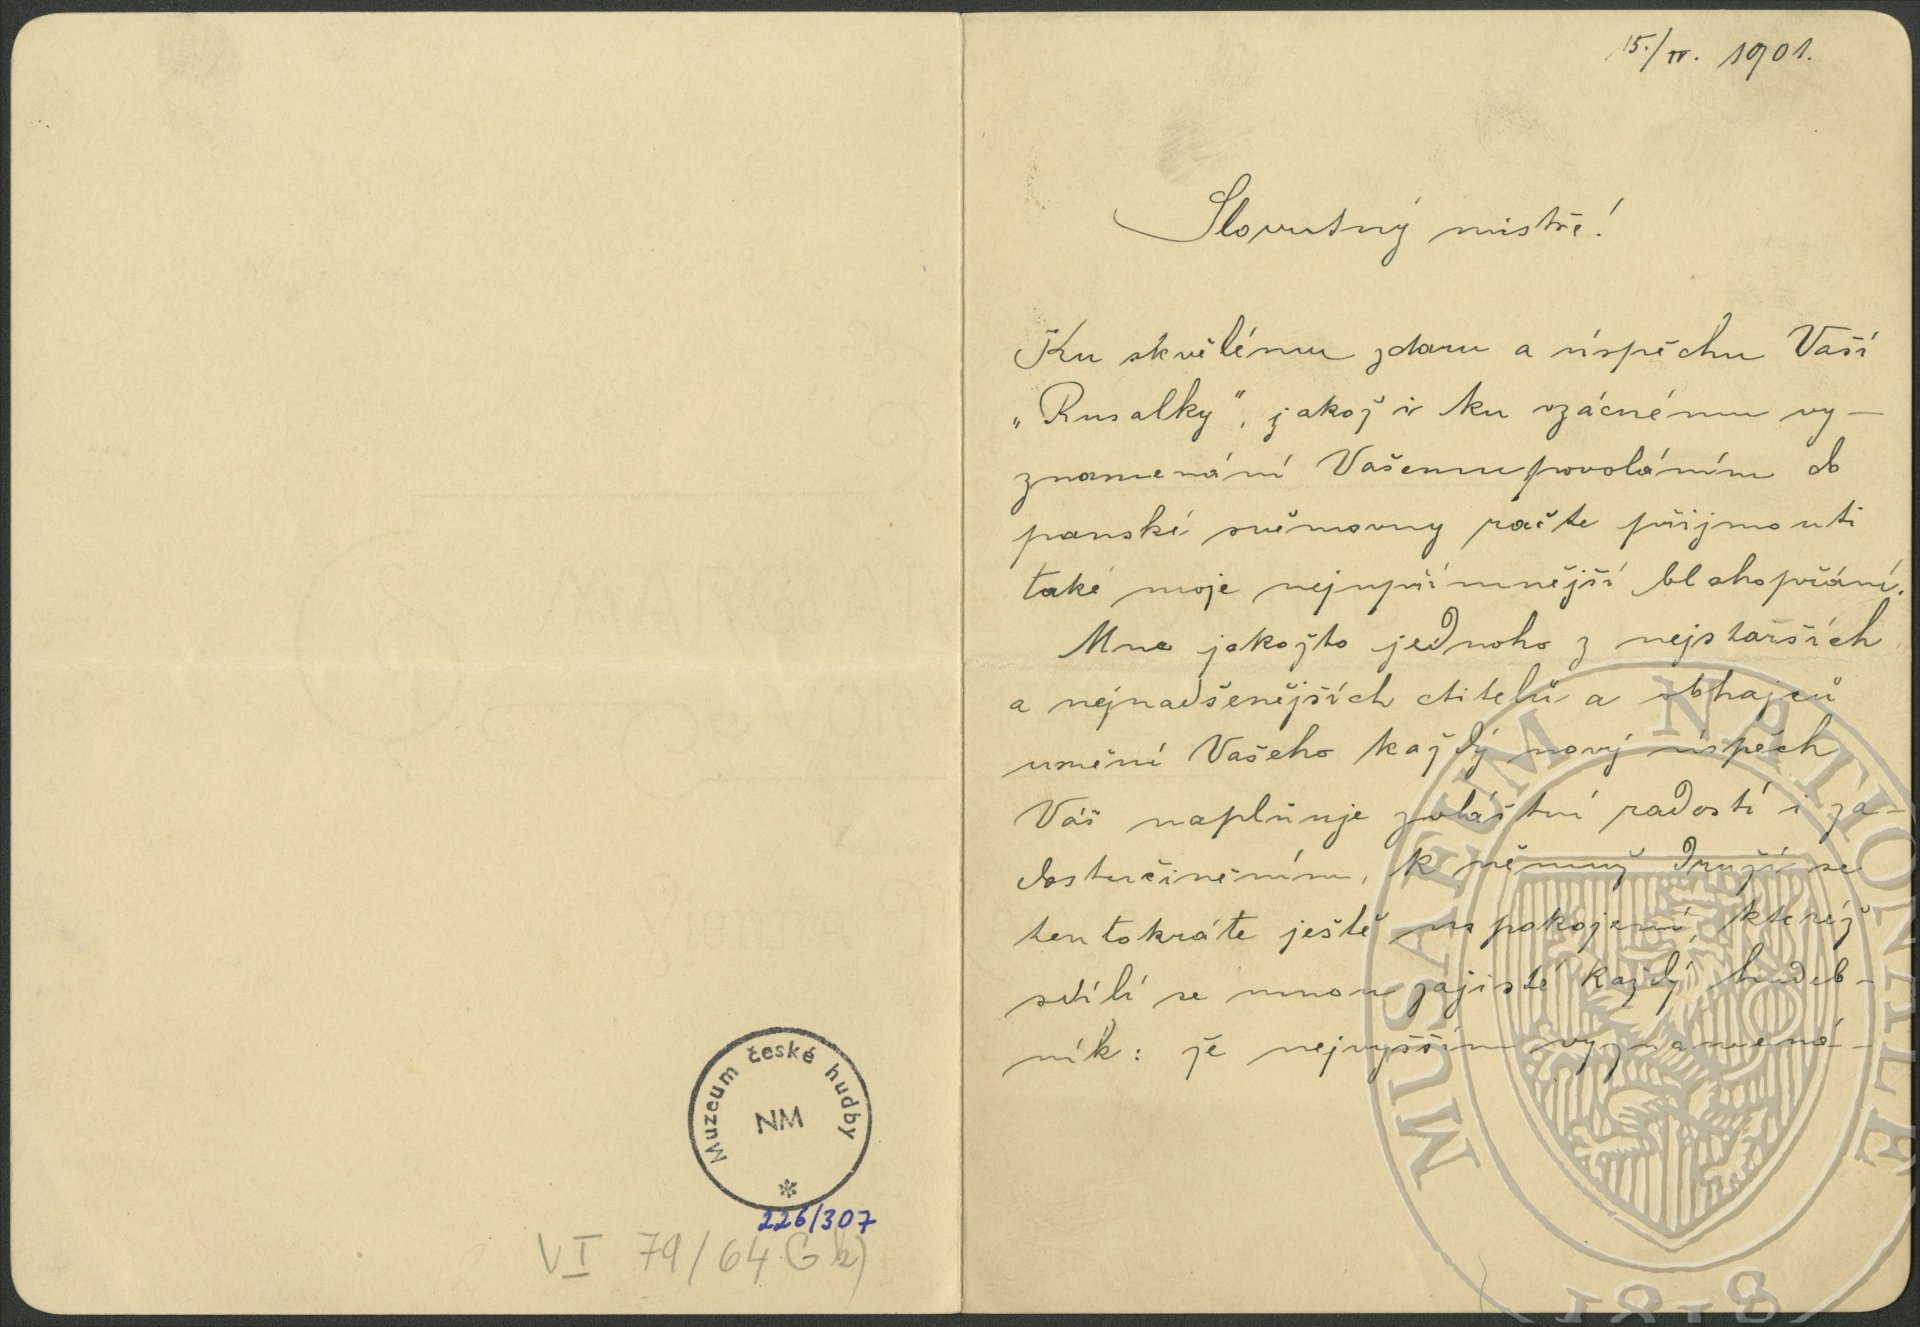 15./IV. 1901.
Slovutný mistře!
Ku skvělému zdaru a úspěchu Vaší
„Rusalky", jakož i ku vzácnému vy-
znamenání Vašemu povoláním do
panské sněmovny račte přijmouti
také moje nejupřímnější blahopřání.
Mne jakožto jednoho z nejstarších
a nejnadšenějších ctitelů a obhajců
umění Vašeho každý nový úspěch
Váš naplňuje zvláštní radostí i za-
dostučiněním, k němuž druží se
tentokráte ještě uspokojení, kteréž
sdílí se mnou zajisté každý hudeb-
ník: že nejvyšším vyznamená-
Muzeum české hudby
NM
226/307
VI 79/64 G k)
MUSAEUM NATIONALE
1818